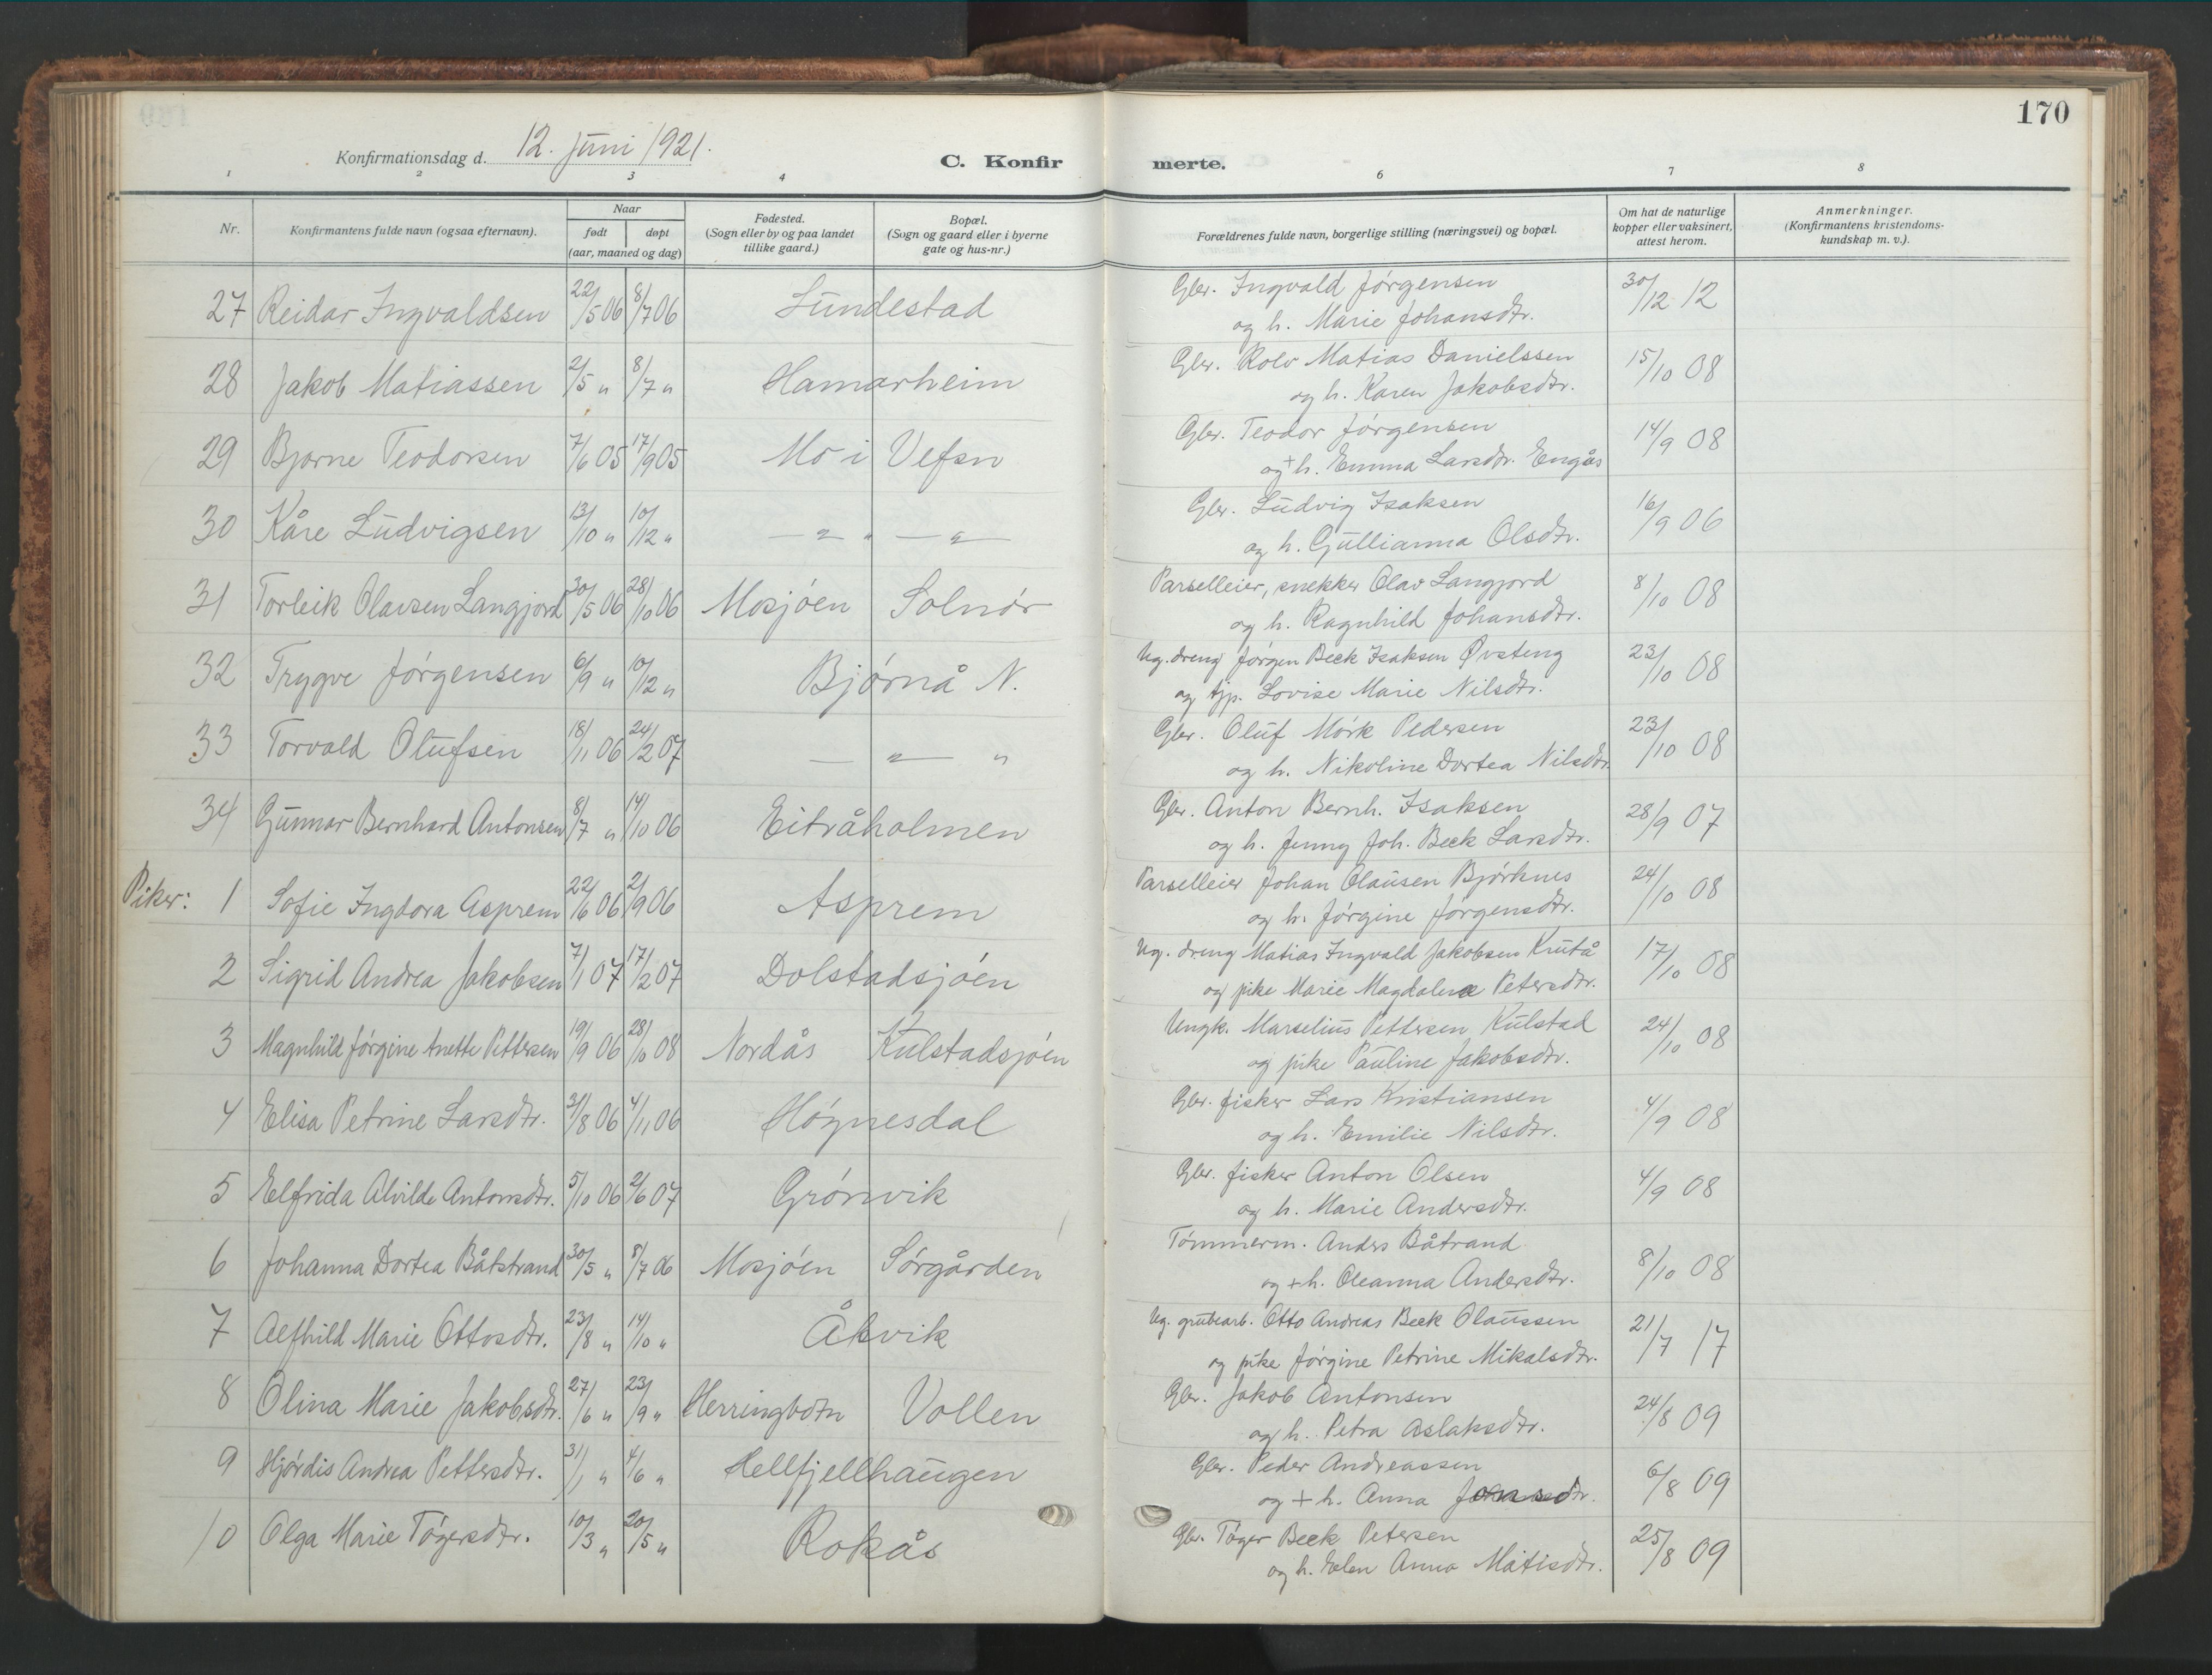 170
Konfirmationsdag d. 12. Juni 1921.
C. Konfirmerte.
1 2 3 4 6 7 8
Nr.
Konfirmantens fulde navn (ogsaa efternavn).
Naar
født
døpt
(aar, maaned og dag)
Fødested.
(Sogn eller by og paa landet
tillike gaard.)
Bopæl.
(Sogn og gaard eller i byerne
gate og hus-nr.)
Forældrenes fulde navn, borgerlige stilling (næringsvei) og bopæl.
Om hat de naturlige
kopper eller vaksinert,
attest herom.
Anmerkninger.
(Konfirmantens kristendoms-
kundskap m. v.).
27 Reidar Ingvaldsen 22/5 06 8/7 06 Lundestad Gbr. Ingvald Jørgensen 30/12 12
og h. Marie Johansdtr.
28 Jakob Matiassen 2/5 " 8/7 " Hamarheim Gbr. Rolv Matias Danielssen 15/10 08
og h. Karen Jakobsdtr.
29 Bjarne Teodorsen 7/6 05 17/9 05 Mo i Vefsn Gbr. Teodor Jørgensen 14/9 08
og + h. Emma Larsdtr. Engås
30 Kåre Ludvigsen 13/10 " 10/12 " — " — " — Gbr. Ludvig Isaksen 16/9 06
og h. Gullianna Olsdtr.
31 Torleik Olavsen Langjord 30/5 06 28/10 06 Mosjøen Solnør Parselleier, snekker Olav Langjord 8/10 08
og h. Ragnhild Johansdtr.
32 Trygve Jørgensen 6/9 " 10/12 " Bjørnå N. Ug. dreng Jørgen Beck Isaksen Øvsteng 23/10 08
og tjp. Lovise Marie Nilsdtr.
33 Torvald Olufsen 18/11 06 24/2 07 — " — " Gbr. Oluf Mørk Pedersen 23/10 08
og h. Nikoline Dortea Nilsdtr
34 Gunnar Bernhard Antonsen 8/7 " 14/10 06 Eitråholmen Gbr. Anton Bernh. Isaksen 28/9 07
og h. Jenny Joh. Beck Larsdtr.
Piker: 1 Sofie Ingdora Asprem 22/6 06 2/9 06 Asprem Parselleier Johan Olausen Bjørknes 24/10 08
og h. Jørgine Jørgensdtr.
2 Sigrid Andrea Jakobsen 7/1 07 17/2 07 Dolstadsjøen Ug. dreng Matias Ingvald Jakobsen Krutå 17/10 08
og pike Marie Magdalena Petersdtr.
3 Magnhild Jørgine Anette Pettersen 19/9 06 28/10 08 Nordås Kulstadsjøen Ungk. Marselius Pettersen Kulstad 24/10 08
og pike Pauline Jakobsdtr.
4 Elisa Petrine Larsdtr. 31/8 06 4/11 06 Høgnesdal Gbr. fisker Lars Kristiansen 4/9 08
og h. Emilie Nilsdtr.
5 Elfrida Alvilde Antonsdtr. 5/10 06 2/6 07 Grønvik Gbr. fisker Anton Olsen 4/9 08
og h. Marie Andersdtr.
6 Johanna Dortea Båtstrand 30/5 " 8/7 06 Mosjøen Sørgården Tømmerm. Anders Båtrand 8/10 08
og + h. Oleanna Andersdtr.
7 Alfhild Marie Ottosdtr. 23/8 " 14/10 " Åkvik Ug. grubearb. Otto Andreas Beck Olaussen 21/7 17
og pike Jørgine Petrine Mikalsdtr.
8 Olina Marie Jakobsdtr. 27/6 " 23/9 " Herringbotn Vollen Gbr. Jakob Antonsen 24/8 09
og h. Petra Aslaksdtr.
9 Hjørdis Andrea Pettersdtr. 31/1 " 4/6 " Hellfjellhaugen Gbr. Peder Andreassen 6/8 09
og + h. Anna Jonsdtr.
10 Olga Marie Tøgersdtr. 10/3 " 20/5 " Rokås Gbr. Tøger Beck Petersen 25/8 09
og h. Elen Anna Matisdtr.